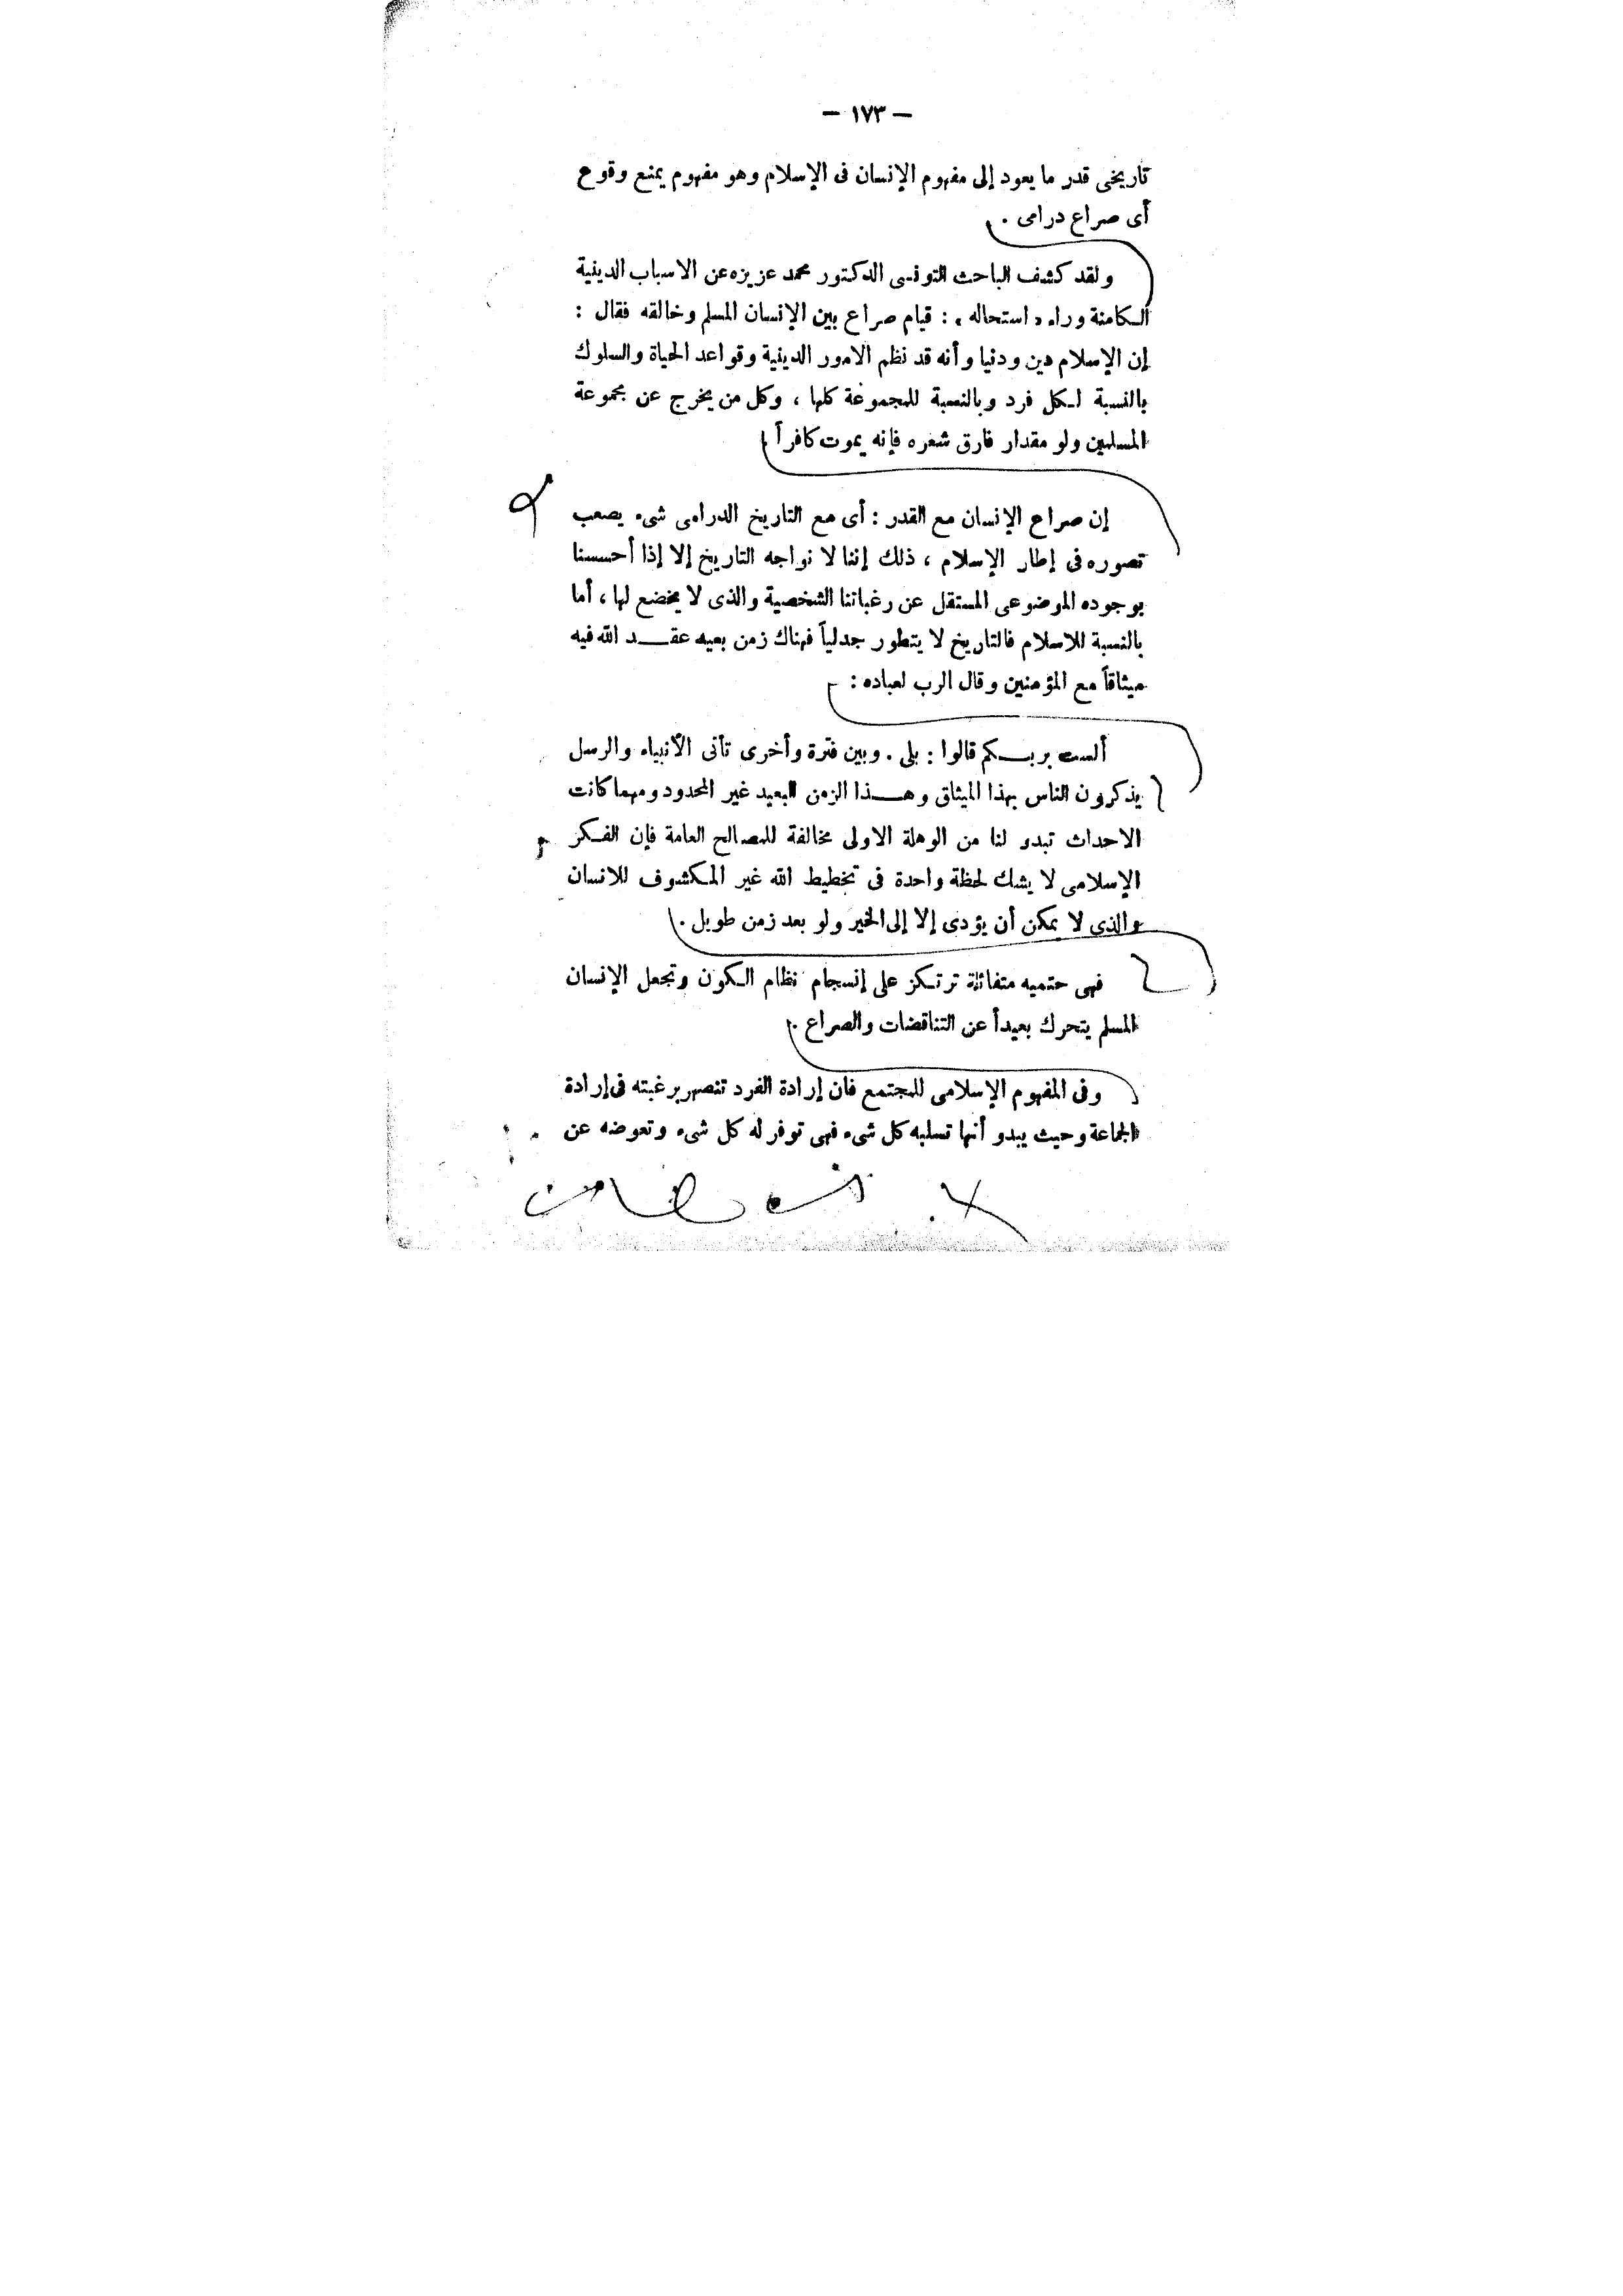 — ١٧٣ —
تاريخى قدر ما يعود إلى مفهوم الإنسان فى الإسلام وهو مفهوم يمنع وقوع
أى صراع درامى .
ولقد كشف الباحث التونسى الدكتور محمد عزيزه عن الاسباب الدينية
الكامنة وراء « استحاله » : قيام صراع بين الإنسان المسلم وخالقه فقال :
إن الإسلام دين ودنيا وأنه قد نظم الامور الدينية وقواعد الحياة والسلوك
بالنسبة لكل فرد وبالنسبة للمجموعة كلها ، وكل من يخرج عن مجموعة
المسلمين ولو مقدار فارق شعره فإنه يموت كافراً
إن صراع الإنسان مع القدر : أى مع التاريخ الدرامى شىء يصعب
تصوره فى إطار الإسلام ، ذلك إننا لا نواجه التاريخ إلا إذا أحسسنا
بوجوده الموضوعى المستقل عن رغباتنا الشخصية والذى لا يخضع لها ، أما
بالنسبة للاسلام فالتاريخ لا يتطور جدلياً فهناك زمن بعيه عقد الله فيه
ميثاقاً مع المؤمنين وقال الرب لعباده :
ألست بربكم قالوا : بلى . وبين فترة وأخرى تأتى الأنبياء والرسل
يذكرون الناس بهذا الميثاق وهذا الزمن البعيد غير المحدود ومهما كانت
الاحداث تبدو لنا من الوهلة الاولى مخالفة للمصالح العامة فإن الفكر
الإسلامى لا يشك لحظة واحدة فى تخطيط الله غير المكشوف للانسان
والذى لا يمكن أن يؤدى إلا إلى الخير ولو بعد زمن طويل .
فهى حتميه متفائلة ترتكز على إنسجام نظام الكون وتجعل الإنسان
المسلم يتحرك بعيداً عن التناقضات والصراع .
وفى المفهوم الإسلامى للمجتمع فان إرادة الفرد تنصهر برغبته فى إرادة
الجماعة وحيث يبدو أنها تسلبه كل شىء فهى توفر له كل شىء وتعوضه عن